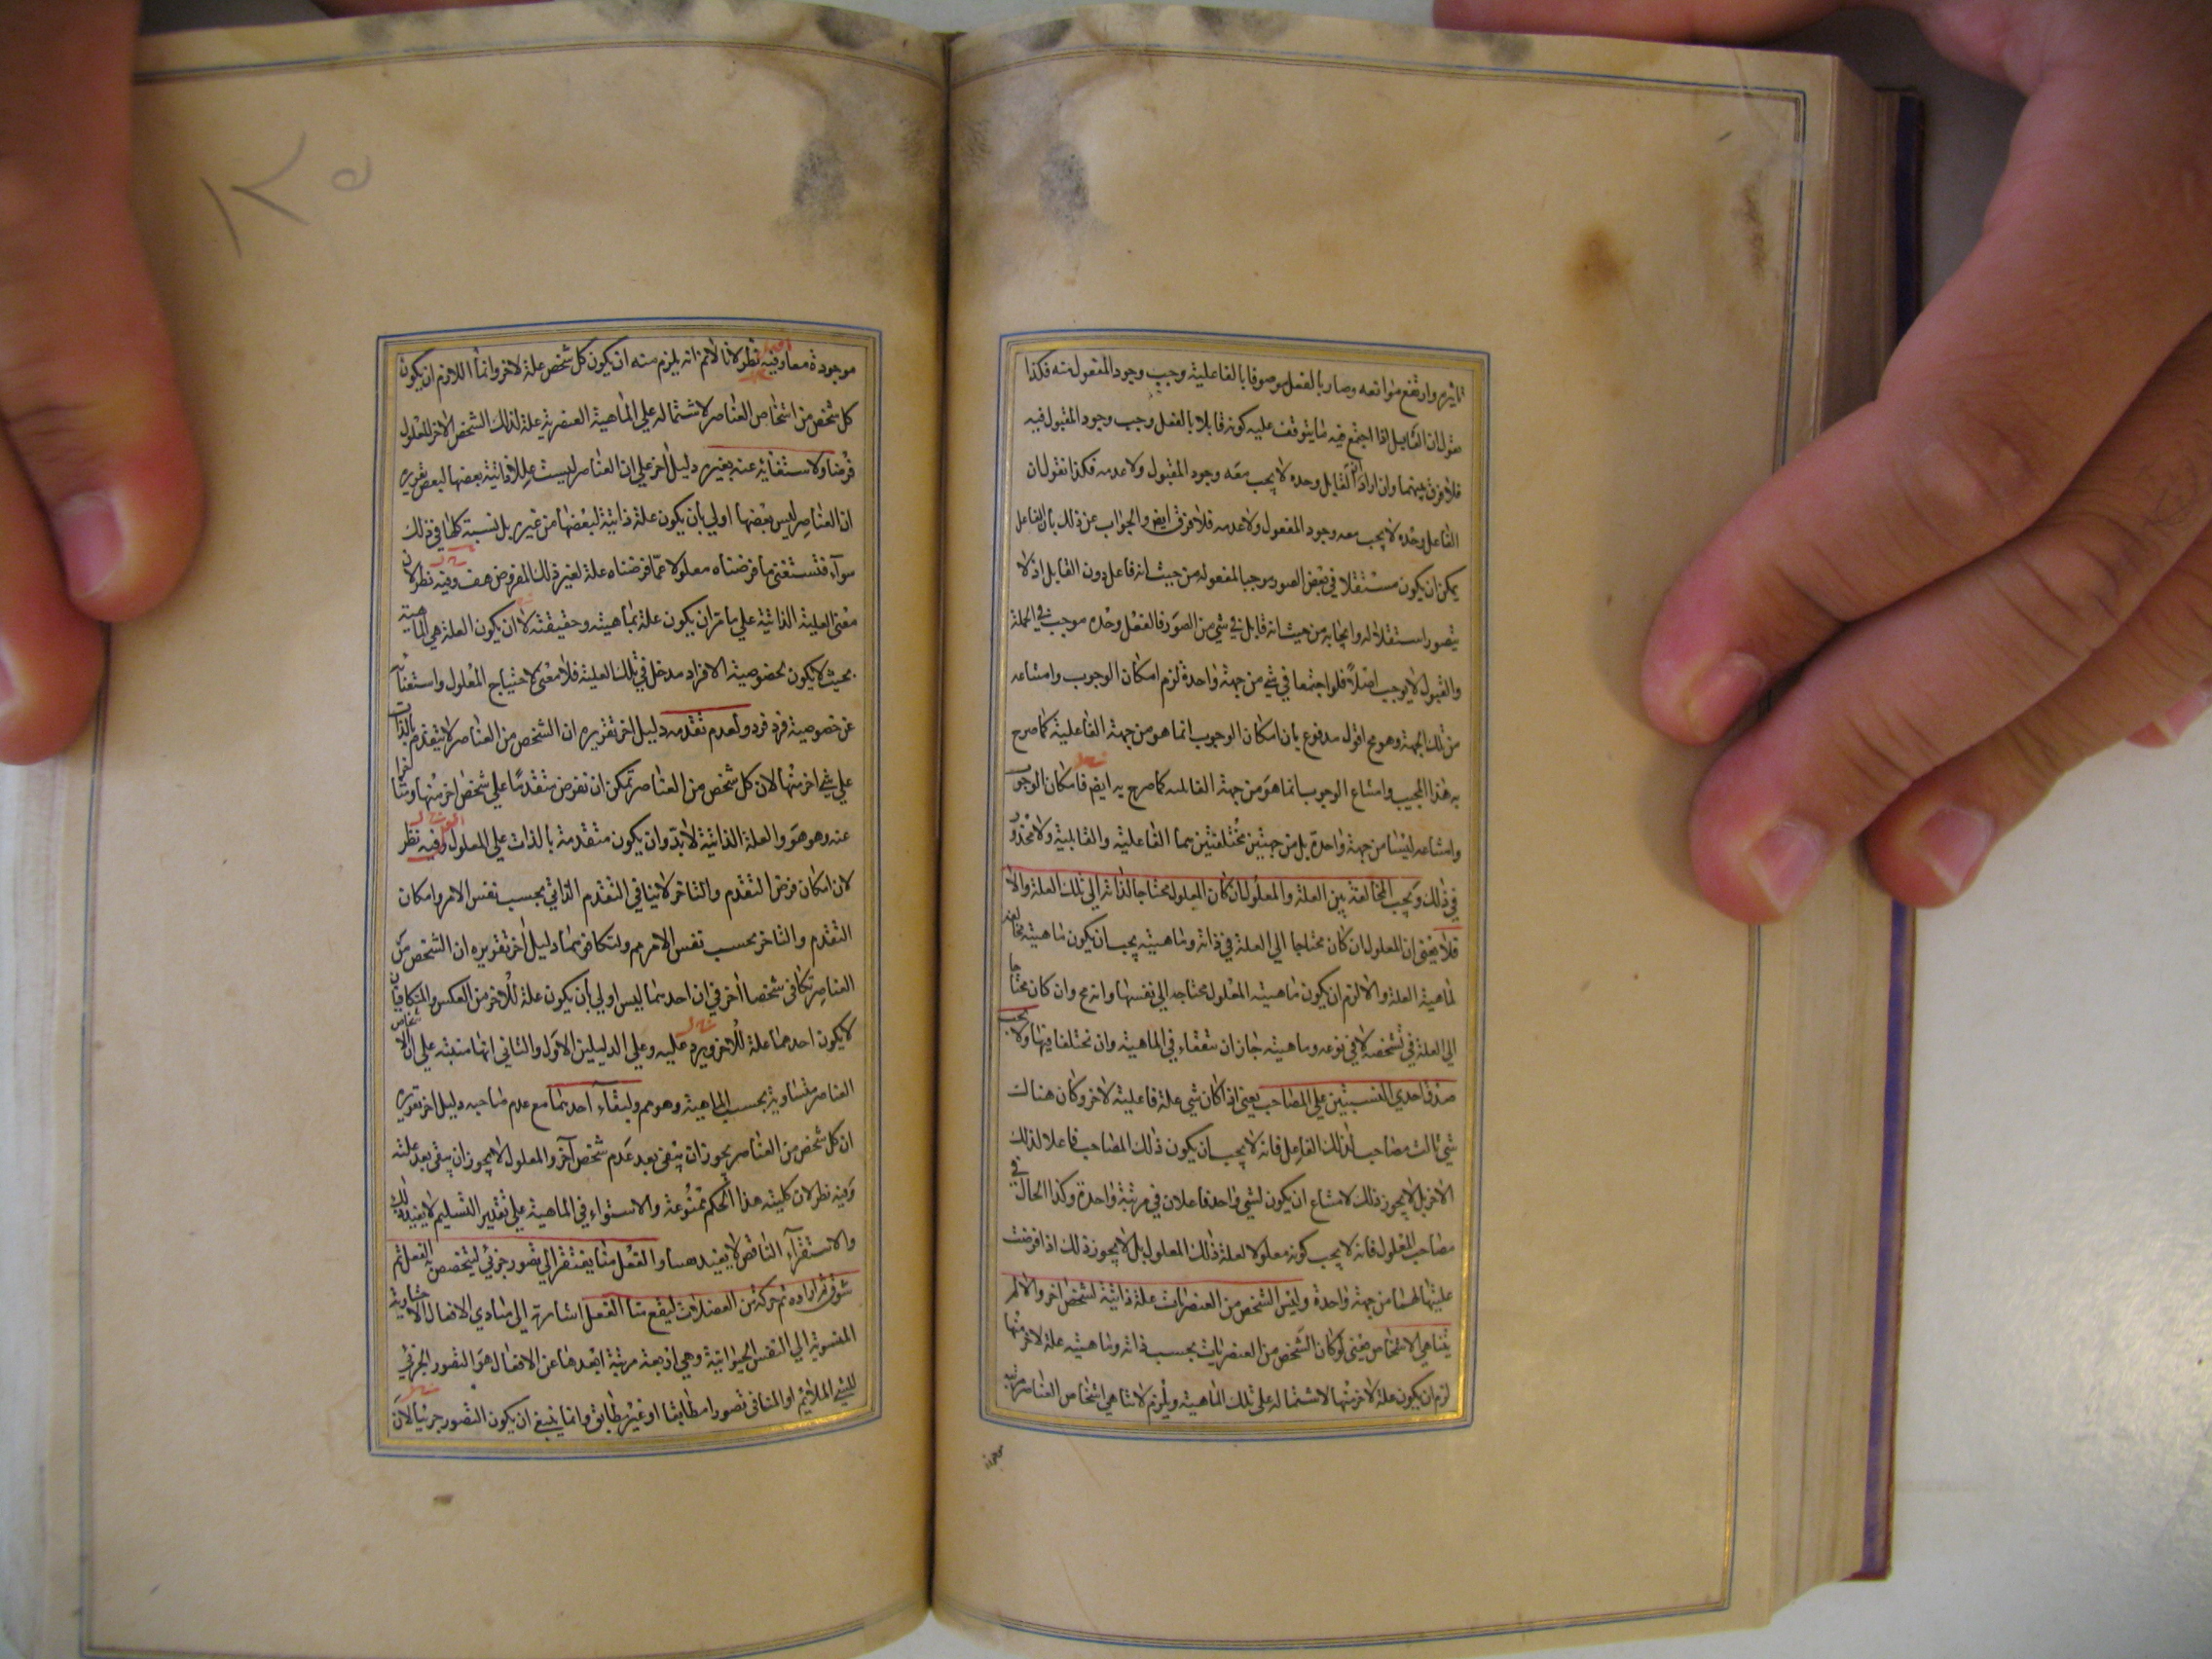 تاثيره وارتفع موانعه وصار بالفعل موصوفا بالفاعلية وجب وجود المفعول منه فكذا
نقول ان القابل اذا اجتمع فيه ما يتوقف عليه كونه قابلا بالفعل وجب وجود المقبول فيه
فلا فرق بينهما وان اراد ان القابل وحده لا يجب معه وجود المقبول ولا عدمه فكذا نقول ان
الفاعل وحده لا يجب معه وجود المفعول ولا عدمه فلا فرق ايض والجواب عن ذلك بان الفاعل
يمكن ان يكون مستقلا في بعض الصور موجبا لمفعوله من حيث انه فاعل دون القابل اذ لا
يتصور استقلاله وايجابه من حيث انه قابل في شي من الصور فالفعل وحده موجب في الجملة
والقبول لا يوجب اصلا فلو اجتمعا في شي من جهة واحدة لزم امكان الوجوب وامتناعه
من تلك الجهة وهو مح اقول مدفوع بان امكان الوجوب انما هو من جهة الفاعلية كما صرح
به هذا المجيب وامتناع الوجوب انما هو من جهة القابلية كما صرح به ايض فامكان الوجوب
وامتناعه ليسا من جهة واحدة بل من جهتين مختلفتين هما الفاعلية والقابلية ولا محذور
في ذلك وتجب المخالفة بين العلة والمعلول ان كان المعلول محتاجا لذاته الى تلك العلة والا
فلا يعنى ان المعلول ان كان محتاجا الى العلة في ذاته وماهيته يجب ان يكون ماهيته مخالفة
لماهية العلة والا لزم ان يكون ماهية المعلول محتاجه الى نفسها وانه مح وان كان محتاجا
الى العلة في تشخصه لا في نوعه وماهيته جاز ان يتفقا في الماهية وان يختلفا فيها ولا يجب
صدق احدي النسبتين على المصاحب يعنى اذا كان شي علة فاعلية لاخر وكان هناك
شي ثالث مصاحب لذلك الفاعل فانه لا يجب ان يكون ذلك المصاحب فاعلا لذلك
الاخر بل لا يجوز ذلك لامتناع ان يكون لشي واحد فاعلان في مرتبة واحدة وكذا الحال في
مصاحب المعلول فانه لا يجب كونه معلولا لعلة ذلك المعلول بل لا يجوز ذلك اذا فرضت
عليتها لهما من جهة واحدة وليس الشخص من العنصريات علة ذاتية لشخص اخر والا لم
يتناهي الاشخاص يعنى لو كان الشخص من العنصريات بحسب ذاته وماهيته علة لاخر منها
لزم ان يكون علة لاخر منها لاشتماله على تلك الماهية ويلزم لا تناهي اشخاص العناصر مترتبة
موجودة معا وفيه نظر لانا لانم انه يلزم منه ان يكون كل شخص علة لاخر وانما اللازم ان يكون
كل شخص من اشخاص العناصر لاشتماله على الماهية العنصرية علة لذلك الشخص الاخر المعلول
فرضا ولاستغنائه عنه بغيره دليل اخر على ان العناصر ليست علل ذاتية بعضها لبعض تقريره
ان العناصر ليس بعضها اولي بان يكون علة ذاتية لبعضها من غيره بل نسبة كلها في ذلك
سواء فتستغنى ما فرضناه معلولا عما فرضناه علة لغير ذلك المفروض هف وفيه نظر لان
معنى العلية الذاتية على ما مر ان يكون علة بماهيته وحقيقته لا ان يكون العلة هي الماهية
بحيث لا يكون لخصوصية الافراد مدخل في تلك العلية فلا معنى لاحتياج المعلول واستغنائه
عن خصوصية فرد فرد ولعدم تقدمه دليل اخر تقريره ان الشخص من العناصر لا يتقدم بالذات
علي شي اخر منها لان كل شخص من العناصر تمكن ان نفرض متقدما علي شخص اخر منها ومتاخرا
عنه وهو هو والعلة الذاتية لابد وان يكون متقدمة بالذات علي المعلول وفيه نظر
لان امكان فرض التقدم والتاخر لا ينافي التقدم الذاتي بحسب نفس الامر وامكان
التقدم والتاخر بحسب نفس الامر مم ولتكافؤهما دليل اخر تقريره ان الشخص من
العناصر تكافى شخصا اخر في ان احدهما ليس اولي بان يكون علة للاخر من العكس والمتكافيان
لا يكون احدهما علة للاخر ويرد عليه وعلي الدليلين الاول والثاني انها مبتنية علي ان الاشخاص
العناصر متساوية بحسب الماهية وهو مم ولبقاء احدهما مع عدم صاحبه دليل اخر تقريره
ان كل شخص من العناصر يجوز ان يبقى بعد عدم شخص آخر والمعلول لا يجوز ان يبقى بعد علته
وفيه نظر لان كلية هذا الحكم ممنوعة والاستواء في الماهية علي تقدير التسليم لا يفيد ذلك
والاستقراء الناقص لا يفيد هسا والفعل منا يفتقر الي تصور جزئي ليتخصص به الفعل ثم
شوق ثم ارادة ثم حركة من العضلات ليقع منا الفعل اشارة الى مبادي الافعال الاختيارية
المنسوبة الي النفس الحيوانية وهي اربعة مرتبة ابعدها عن الافعال هو التصور الجزئي
للشي الملائم او المنافى تصورا مطابقا او غير مطابق وانما ينبغى ان يكون التصور جزئيا لان